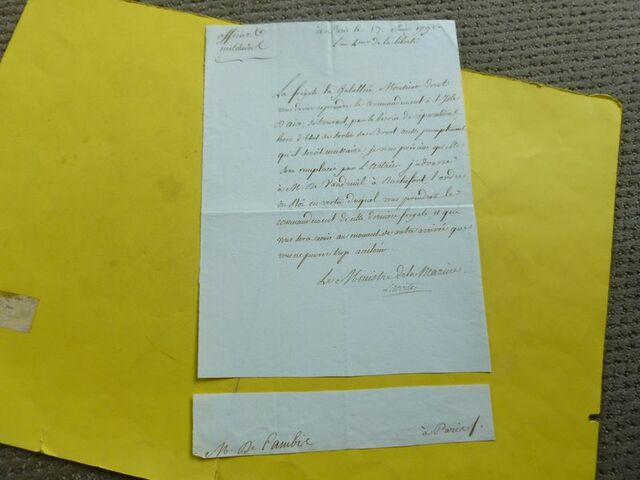 Officier
militaire
à Paris le 17. Juin 1792
L'an 4eme de la liberté
La frégate la Galathée, Monsieur dont
vous deviez reprendre le commandement à l'Isle
D'aix, se trouvant, par le besoin de réparations
hors d'état de sortir de Brest aussi promptement
qu'il seroit nécessaire; je vous préviens qu'elle
sera remplacée par l'
à M. De Vaudreuil à Rochefort l'ordre
du Roi en vertu duquel vous prendrez le
commandement de cette dernière frégate et que
vous sera remis au moment de votre arrivée que
vous ne pouvez trop accélérer.
Le Ministre de la Marine
Lacoste
M. De Cambis
à Paris